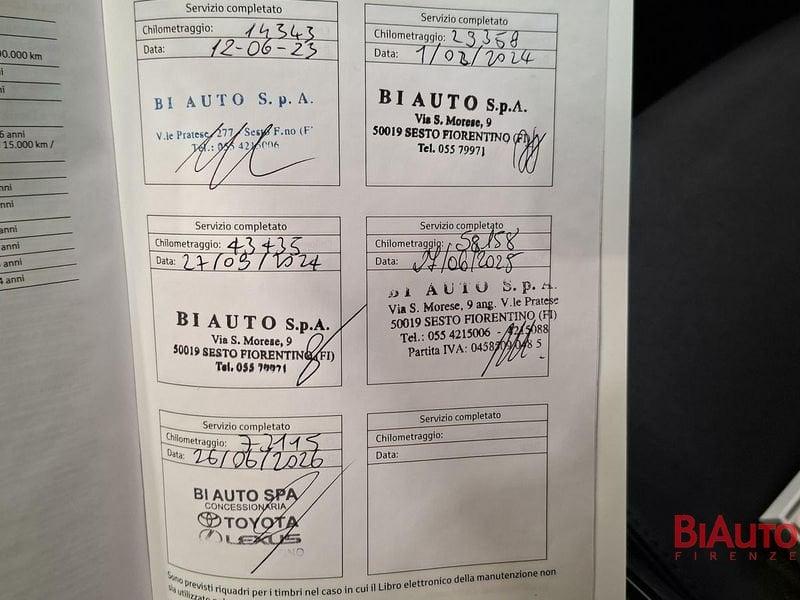 00.000 km
ni
6 anni
15.000 km /
nni
nni
anni
anni
anni
4 anni
Servizio completato
Chilometraggio: 14343
Data: 12-06-23
BI AUTO S.p.A.
V.le Pratese, 277 Sesto F.no (F
Tel.: 055 4215006
Servizio completato
Chilometraggio: 29358
Data: 1/02/2024
BI AUTO S.p.A.
Via S. Morese, 9
50019 SESTO FIORENTINO (FI)
Tel. 055 79971
Servizio completato
Chilometraggio: 43435
Data: 27/09/2024
BI AUTO S.p.A.
Via S. Morese, 9
50019 SESTO FIORENTINO (FI)
Tel. 055 79971
Servizio completato
Chilometraggio: 58158
Data: 27/06/2025
BI AUTO S.p.A.
Via S. Morese, 9 ang. V.le Pratese
50019 SESTO FIORENTINO (FI)
Tel.: 055 4215006 - 4215088
Partita IVA:
Servizio completato
Chilometraggio: 73115
Data: 26/06/2026
BI AUTO SPA
CONCESSIONARIA
TOYOTA
LEXUS
Servizio completato
Chilometraggio:
Data:
Sono previsti riquadri per i timbri nel caso in cui il Libro elettronico della manutenzione non
sia utilizzato
BIAUTO
FIRENZE